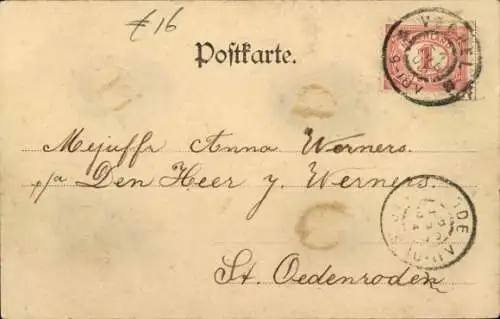 £ 16
Postkarte.
VEGHEL
1
Mejuffr Anna Werners.
p/a Den Heer y. Werners.
St. Oedenroden